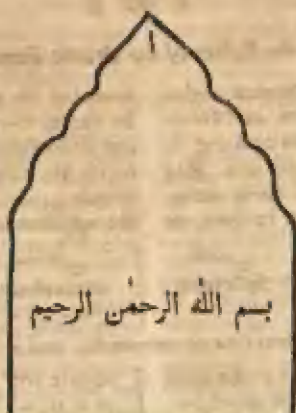 ١
بسم الله الرحمٰن الرحيم